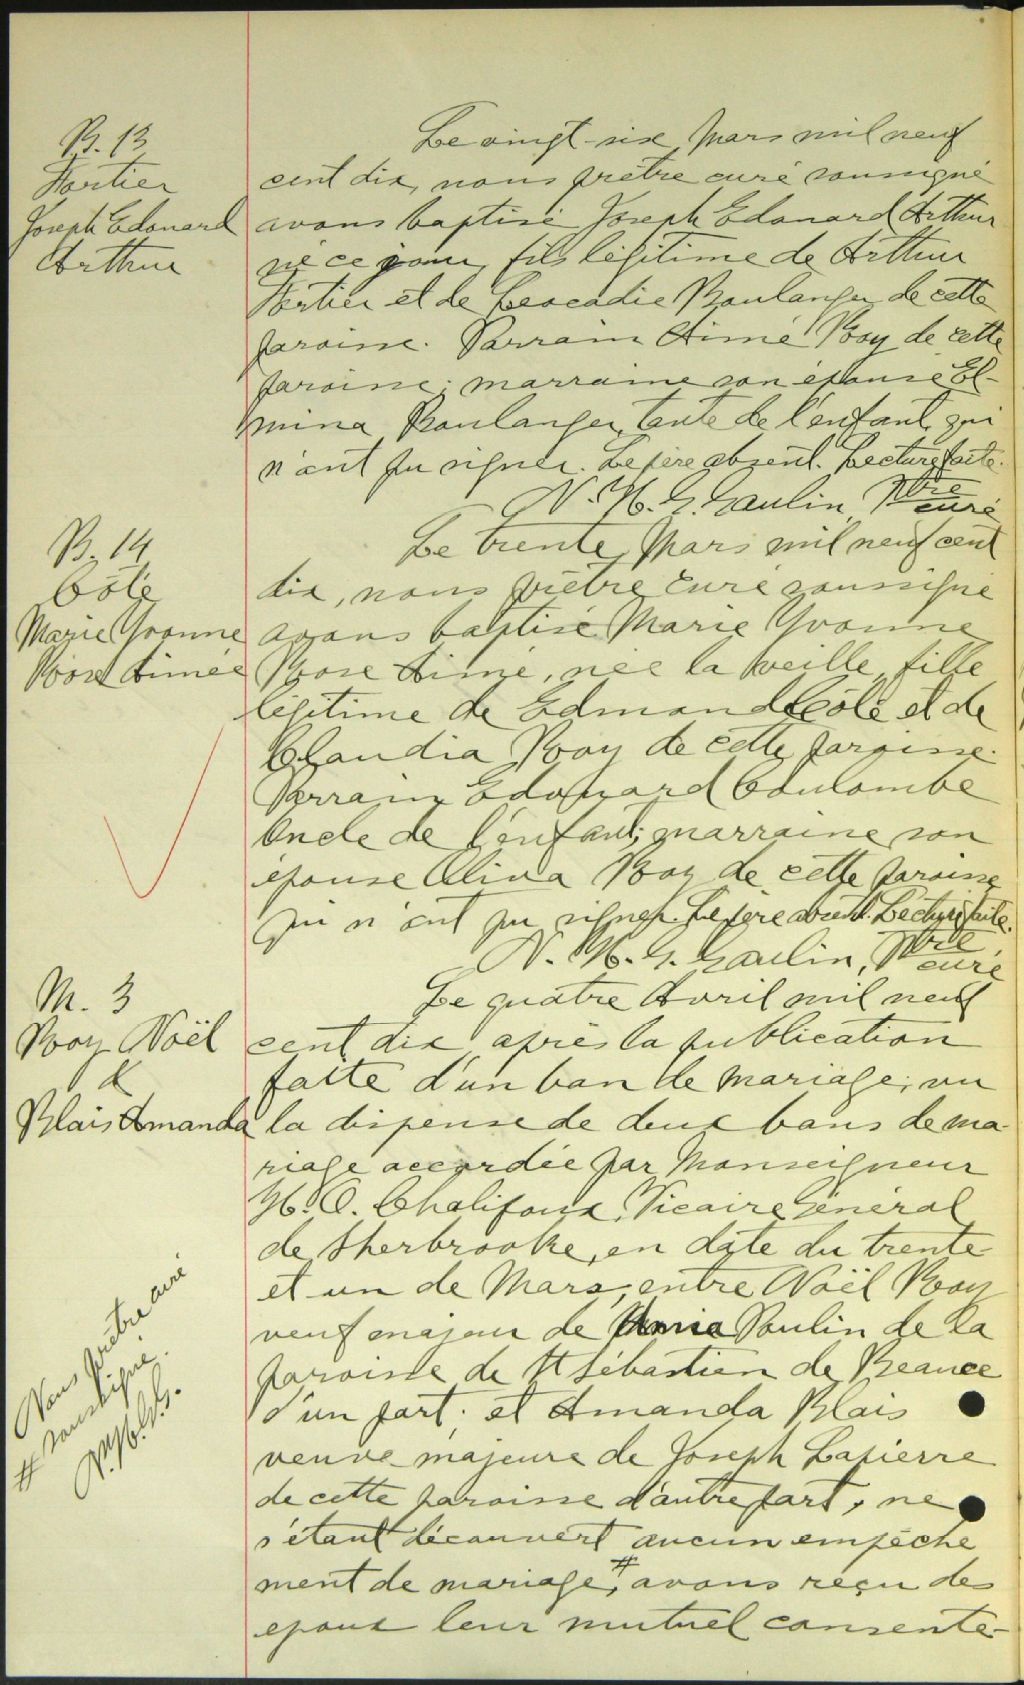 B. 13
Fortier
Joseph Edouard
Arthur
Le vingt-six Mars mil neuf
cent dix, nous prêtre curé soussigné
avons baptisé Joseph Edouard Arthur
né ce jour, fils légitime de Arthur
Fortier et de Leocadie Boulanger de cette
paroisse. Parrain Aimé Roy de cette
paroisse; marraine son épouse El-
mina Boulanger, tante de l'enfant, qui
n'ont pu signer. Le père absent. Lecture faite.
N. H. G. Gaulin, Ptre curé
B. 14
Côté
Marie Yvonne
Rose Aimée
Le trente Mars mil neuf cent
dix, nous prêtre curé soussigné
avons baptisé Marie Yvonne
Rose Aimé, née la veille, fille
légitime de Edmond Côté et de
Claudia Roy de cette paroisse.
Parrain Edouard Coulombe
oncle de l'enfant; marraine son
épouse Oliva Roy de cette paroisse
qui n'ont pu signer. Le père absent. Lecture faite.
N. H. G. Gaulin, Ptre curé
M. 3
Roy Noël
&
Blais Amanda
Le quatre Avril mil neuf
cent dix, après la publication
faite d'un ban de mariage; vu
la dispense de deux bans de ma-
riage accordée par Monseigneur
H. O. Chalifoux, Vicaire Général
de Sherbrooke, en date du trente-
et-un de Mars, entre Noël Roy
veuf majeur de Poulin de la
paroisse de St Sébastien de Beauce
d'un part; et Amanda Blais
veuve majeure de Joseph Lapierre
de cette paroisse d'autre part, ne
s'étant découvert aucun empêche
ment de mariage,# avons reçu des
epoux leur mutuel consente-
# Nous prêtre curé
soussigné.
N. H. G. G.